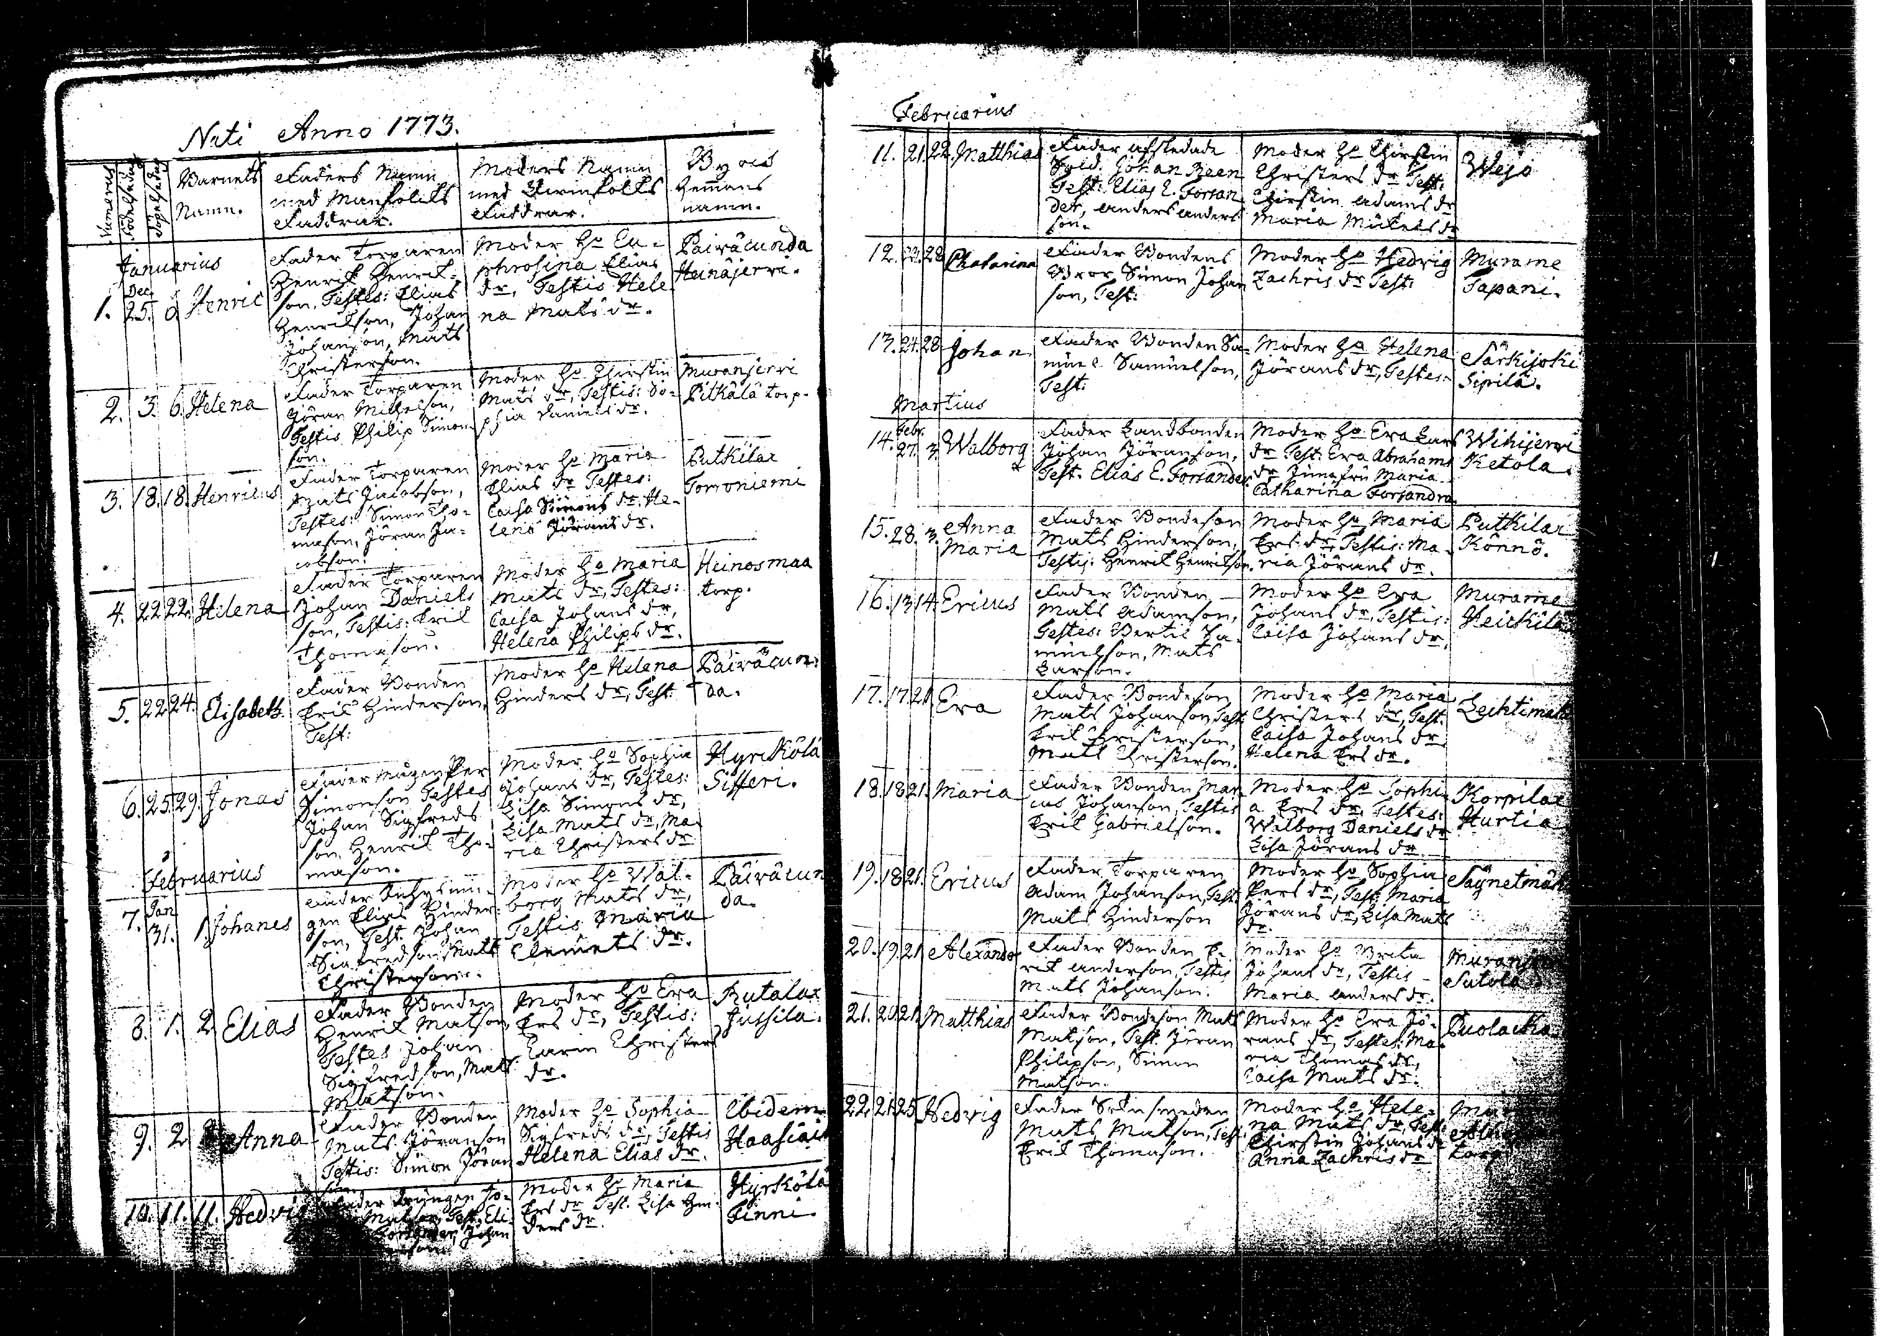 Nati Anno 1773.
Numerus
Födelsedag
Döpelsedag
Barnets
Namn.
Faders Namn
med Manfolks
Faddrar.
Moders Namn
med Qvinfolks
Faddrar.
By och
Hemans
namn.
Januarius
1. Dec. 25. 6. Henric
Fader Torparen
Henrik Henrik-
son, Testes: Elias
Henrikson, Johan
Johanson, Mats
Christerson.
Moder Ho Eu-
phrosina Elias
dr, Testis Hele
na Mats dr.
Päiväcunda
Heinäjerri.
2. 3. 6. Helena
Fader Torparen
Göran Mickelson,
Testis Philip Simon-
son.
Moder Ho Chirstin
Mats dr, Testis: So-
phia Daniels dr.
Muranjerri
Pitkälä torp.
3. 18. 18. Henricus
Fader Torparen
Mats Jacobson,
Testes: Simon Tho-
mason, Jöran Ja-
cobson.
Moder Ho Maria
Elias dr Testes:
Caisa Simons dr, He-
lena Jörans dr.
Putkilax
Torroniemi
4. 22. 22. Helena
Fader Torparen
Johan Daniels
son, Testis: Erik
Thomason.
Moder Ho Maria
Mats dr, Testes:
Caisa Johans dr,
Helena Philips dr.
Heinosmaa
torp.
5. 22. 24. Elisabeth
Fader Bonden
Eric Hinderson,
Test:
Moder Ho Helena
Hinders dr, Test:
Päiväcun-
da.
6. 25. 29. Jonas
Fader Mågen Per
Simonson Testes
Johan Sigfreds
son, Henrik Tho-
mason.
Moder Ho Sophia
Johans dr, Testes:
Lisa Simons dr,
Lisa Mats dr, Ma-
ria Christers dr
Hyrskölä
Sifferi.
Februarius
7. Jan 31. 1. Johanes
Elias Hinder-
son, Test. Johan
Sigfredson, Mats
Christerson.
Moder Ho Wal-
borg Mats dr,
Testis Maria
Clemets dr.
Päiväcun
da.
8. 1. 2. Elias
Fader Bonden
Henrik Matson,
Testes Johan
Sigfredson, Mats
Matson.
Moder Ho Eva
Ers dr, Testis:
Karin Christers
dr.
Putalax
Jussila.
9. 2. Anna
Fader Bonden
Mats Jöranson
Testis: Simon Jöran
son
Moder Ho Sophia
Sigfreds dr, Testis
Helena Elias dr.
Ibidem
Haasiain
10. 11. 11. Hedvig
Fader Drängen
Matson, Test. Eli
Forsander, Johan
Moder Ho Maria
Ers dr Test. Lisa Hin-
ders dr.
Hyrskölä
Pinni.
Februarius
11. 21. 22. Matthias
Fader afskedade
Sold. Johan Reen
Test: Elias E. Forsan
der, Anders Anders
son.
Moder Ho Chirstin
Christers dr, Test:
Chirstin Adams dr
Maria Mickels dr
Wejo
12. 22. 28. Chatarina
Fader Bondens
Bror Simon Johan
son, Test:
Moder Ho Hedvig
Zachris dr Test:
Murame
Tapani.
13. 24. 28. Johan
Fader Bonden Sa-
muel Samuelson,
Test:
Moder Ho Helena
Jörans dr, Testes:
Särkijoki
Sipilä.
Martius
14. Febr. 27. 3. Walborg
Fader Landbonden
Johan Jöranson,
Test. Elias E. Forsander.
Moder Ho Eva Lars
dr Test. Eva Abrahams
dr Jungfru Maria
Catharina Forsandra
Wihijerri
Ketola.
15. 28. 3. Anna
Maria
Fader Bondeson
Mats Hinderson,
Testis: Henrik Henrikson.
Moder Ho Maria
Ers dr, Testis: Ma-
ria Jörans dr.
Putkilax
Könnö.
16. 13. 14. Ericus
Fader Bonden
Mats Adamson,
Testes: Bertil Sa-
muelson, Mats
Larson.
Moder Ho Eva
Johans dr, Testis:
Caisa Johans dr,
Murame
Heickilä
17. 17. 21. Eva
Fader Bondeson
Mats Johanson, Test.
Erik Christerson,
Mats Christerson.
Moder Ho Maria
Christers dr, Test.
Caisa Johans dr,
Helena Ers dr.
Lechtimäki
18. 18. 21. Maria
Fader Bonden Mar
cus Johanson, Testis
Erik Gabrielson.
Moder Ho Sophi
a Ers dr, Testes:
Walborg Daniels dr
Lisa Jörans dr.
Korpilax
Hurtia
19. 18. 21. Ericus
Fader Torparen
Adam Johanson, Test.
Mats Hinderson
Moder Ho Sophia
Pers dr, Test. Maria
Jörans dr, Lisa Mats
dr.
Säynetmäki
20. 19. 21. Alexander
Fader Bonden E-
rik Anderson, Testis
Mats Johanson.
Moder Ho Brita
Johans dr, Testis
Maria Anders dr.
Sutola
21. 20. 21. Matthias
Fader Bondeson Mats
Matson, Test. Jöran
Philipson, Simon
Matson.
Moder Ho Eva Jö-
rans dr, Testes: Ma-
ria Thomas dr,
Caisa Mats dr.
Puolacka
22. 21. 25. Hedvig
Fader
Mats Matson, Test.
Erik Thomason.
Moder Ho Hele-
na Mats dr, Test:
Chirstin Johans dr
Anna Zachris dr
torp